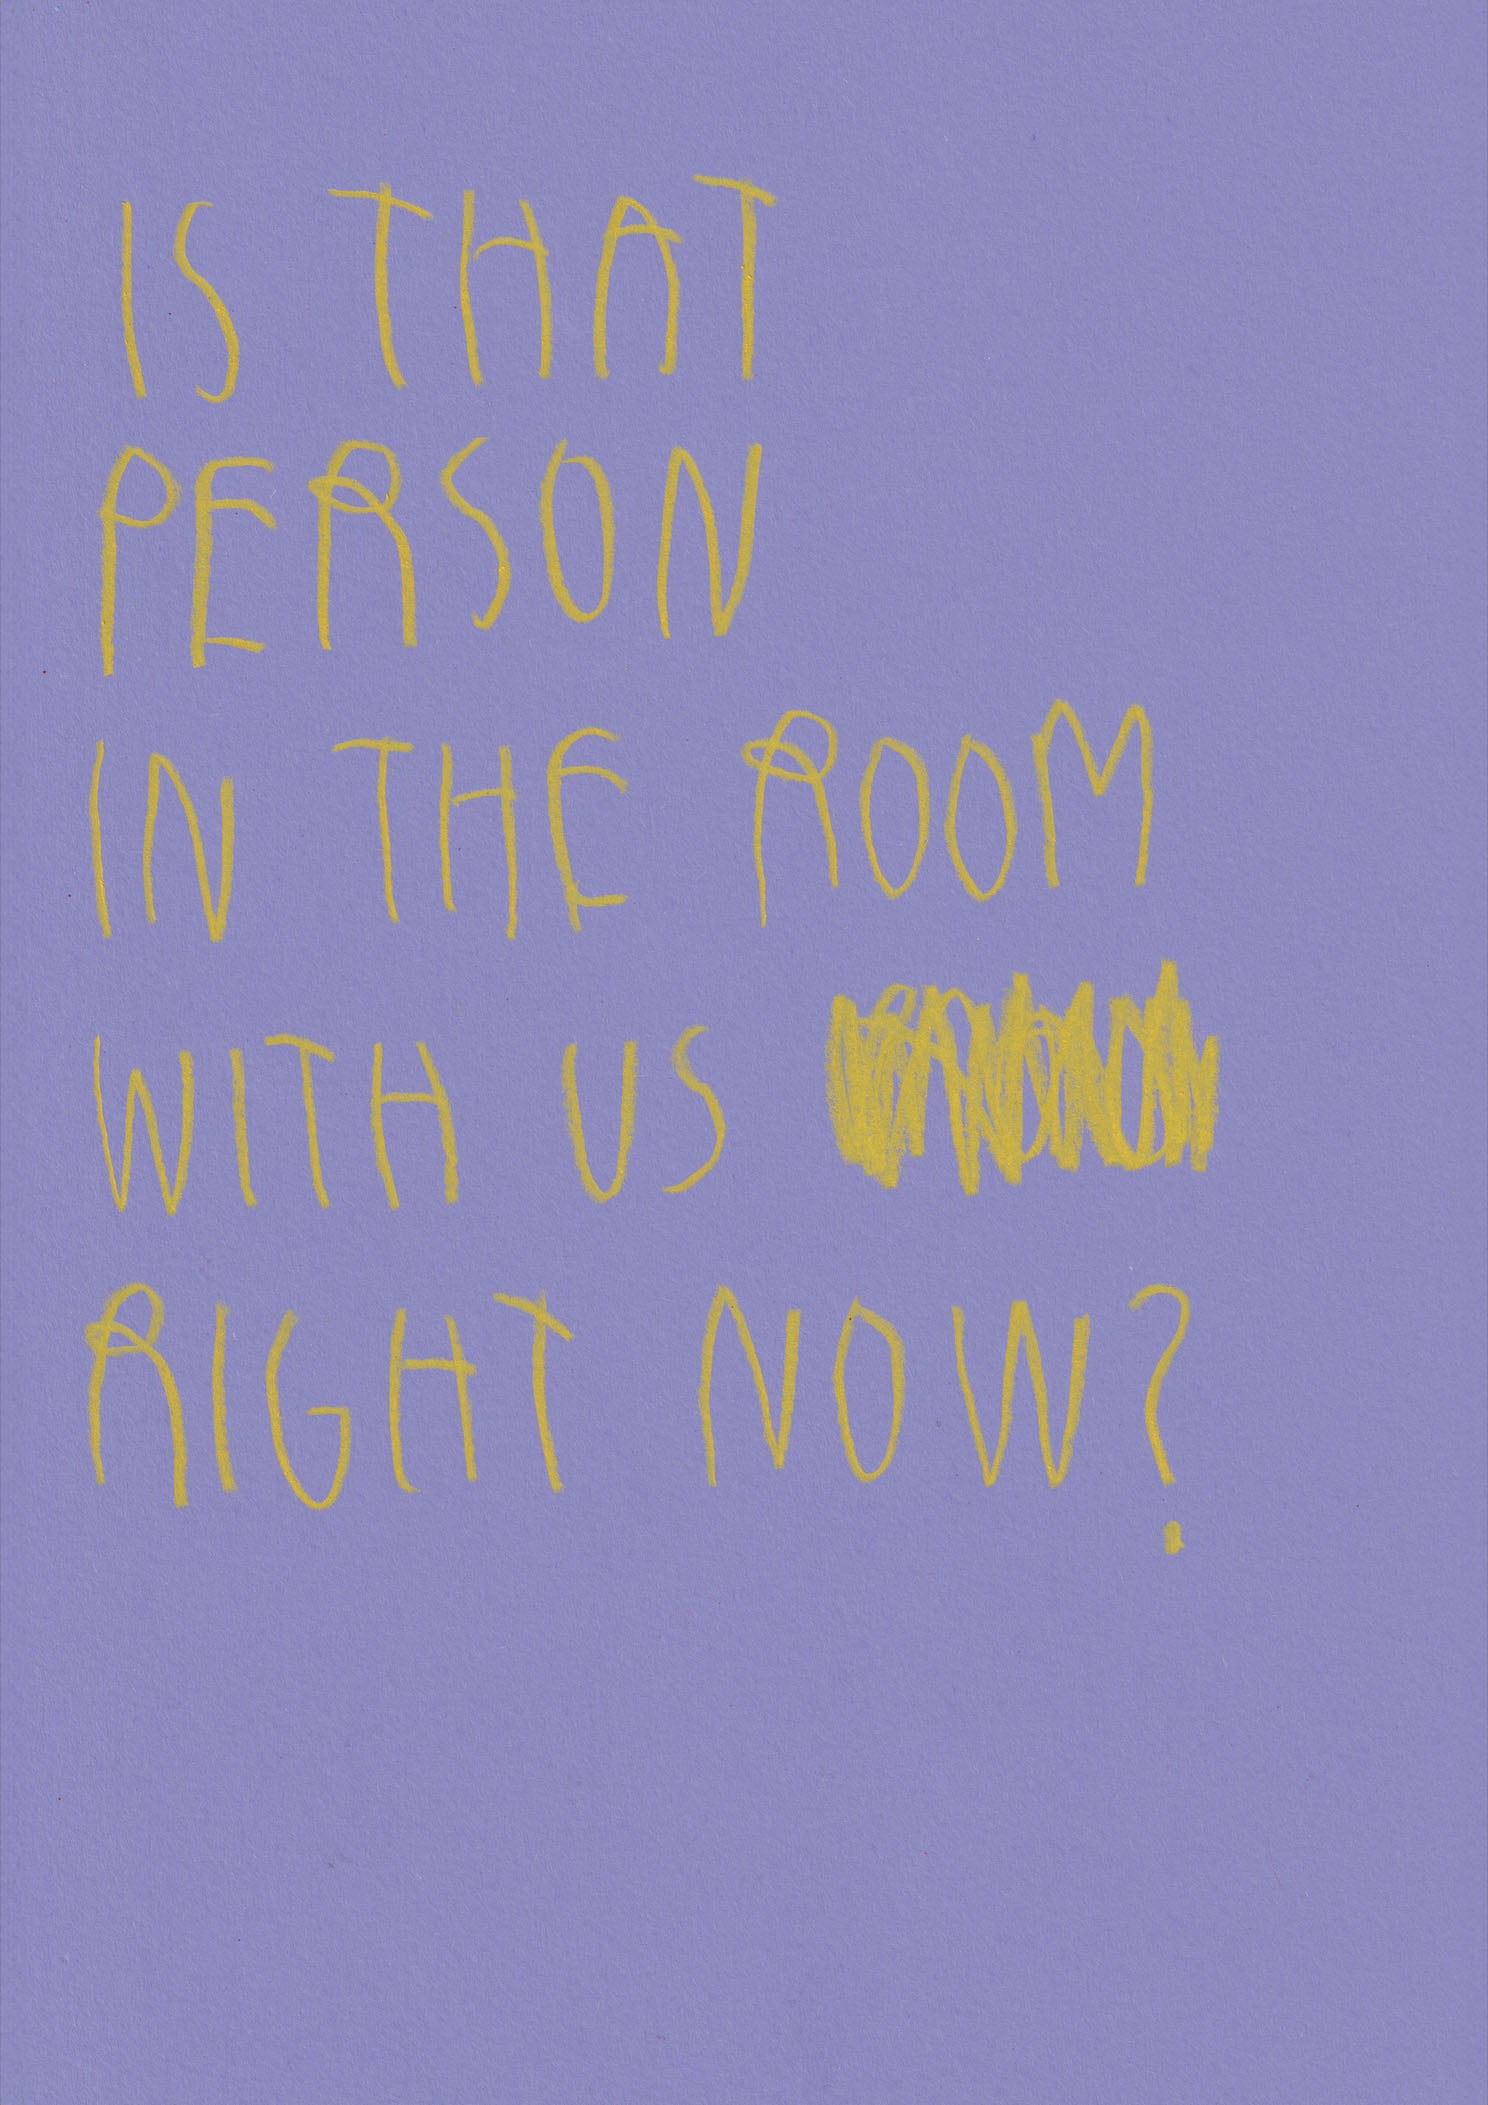 IS THAT
PERSON
IN THE ROOM
WITH US
RIGHT NOW?